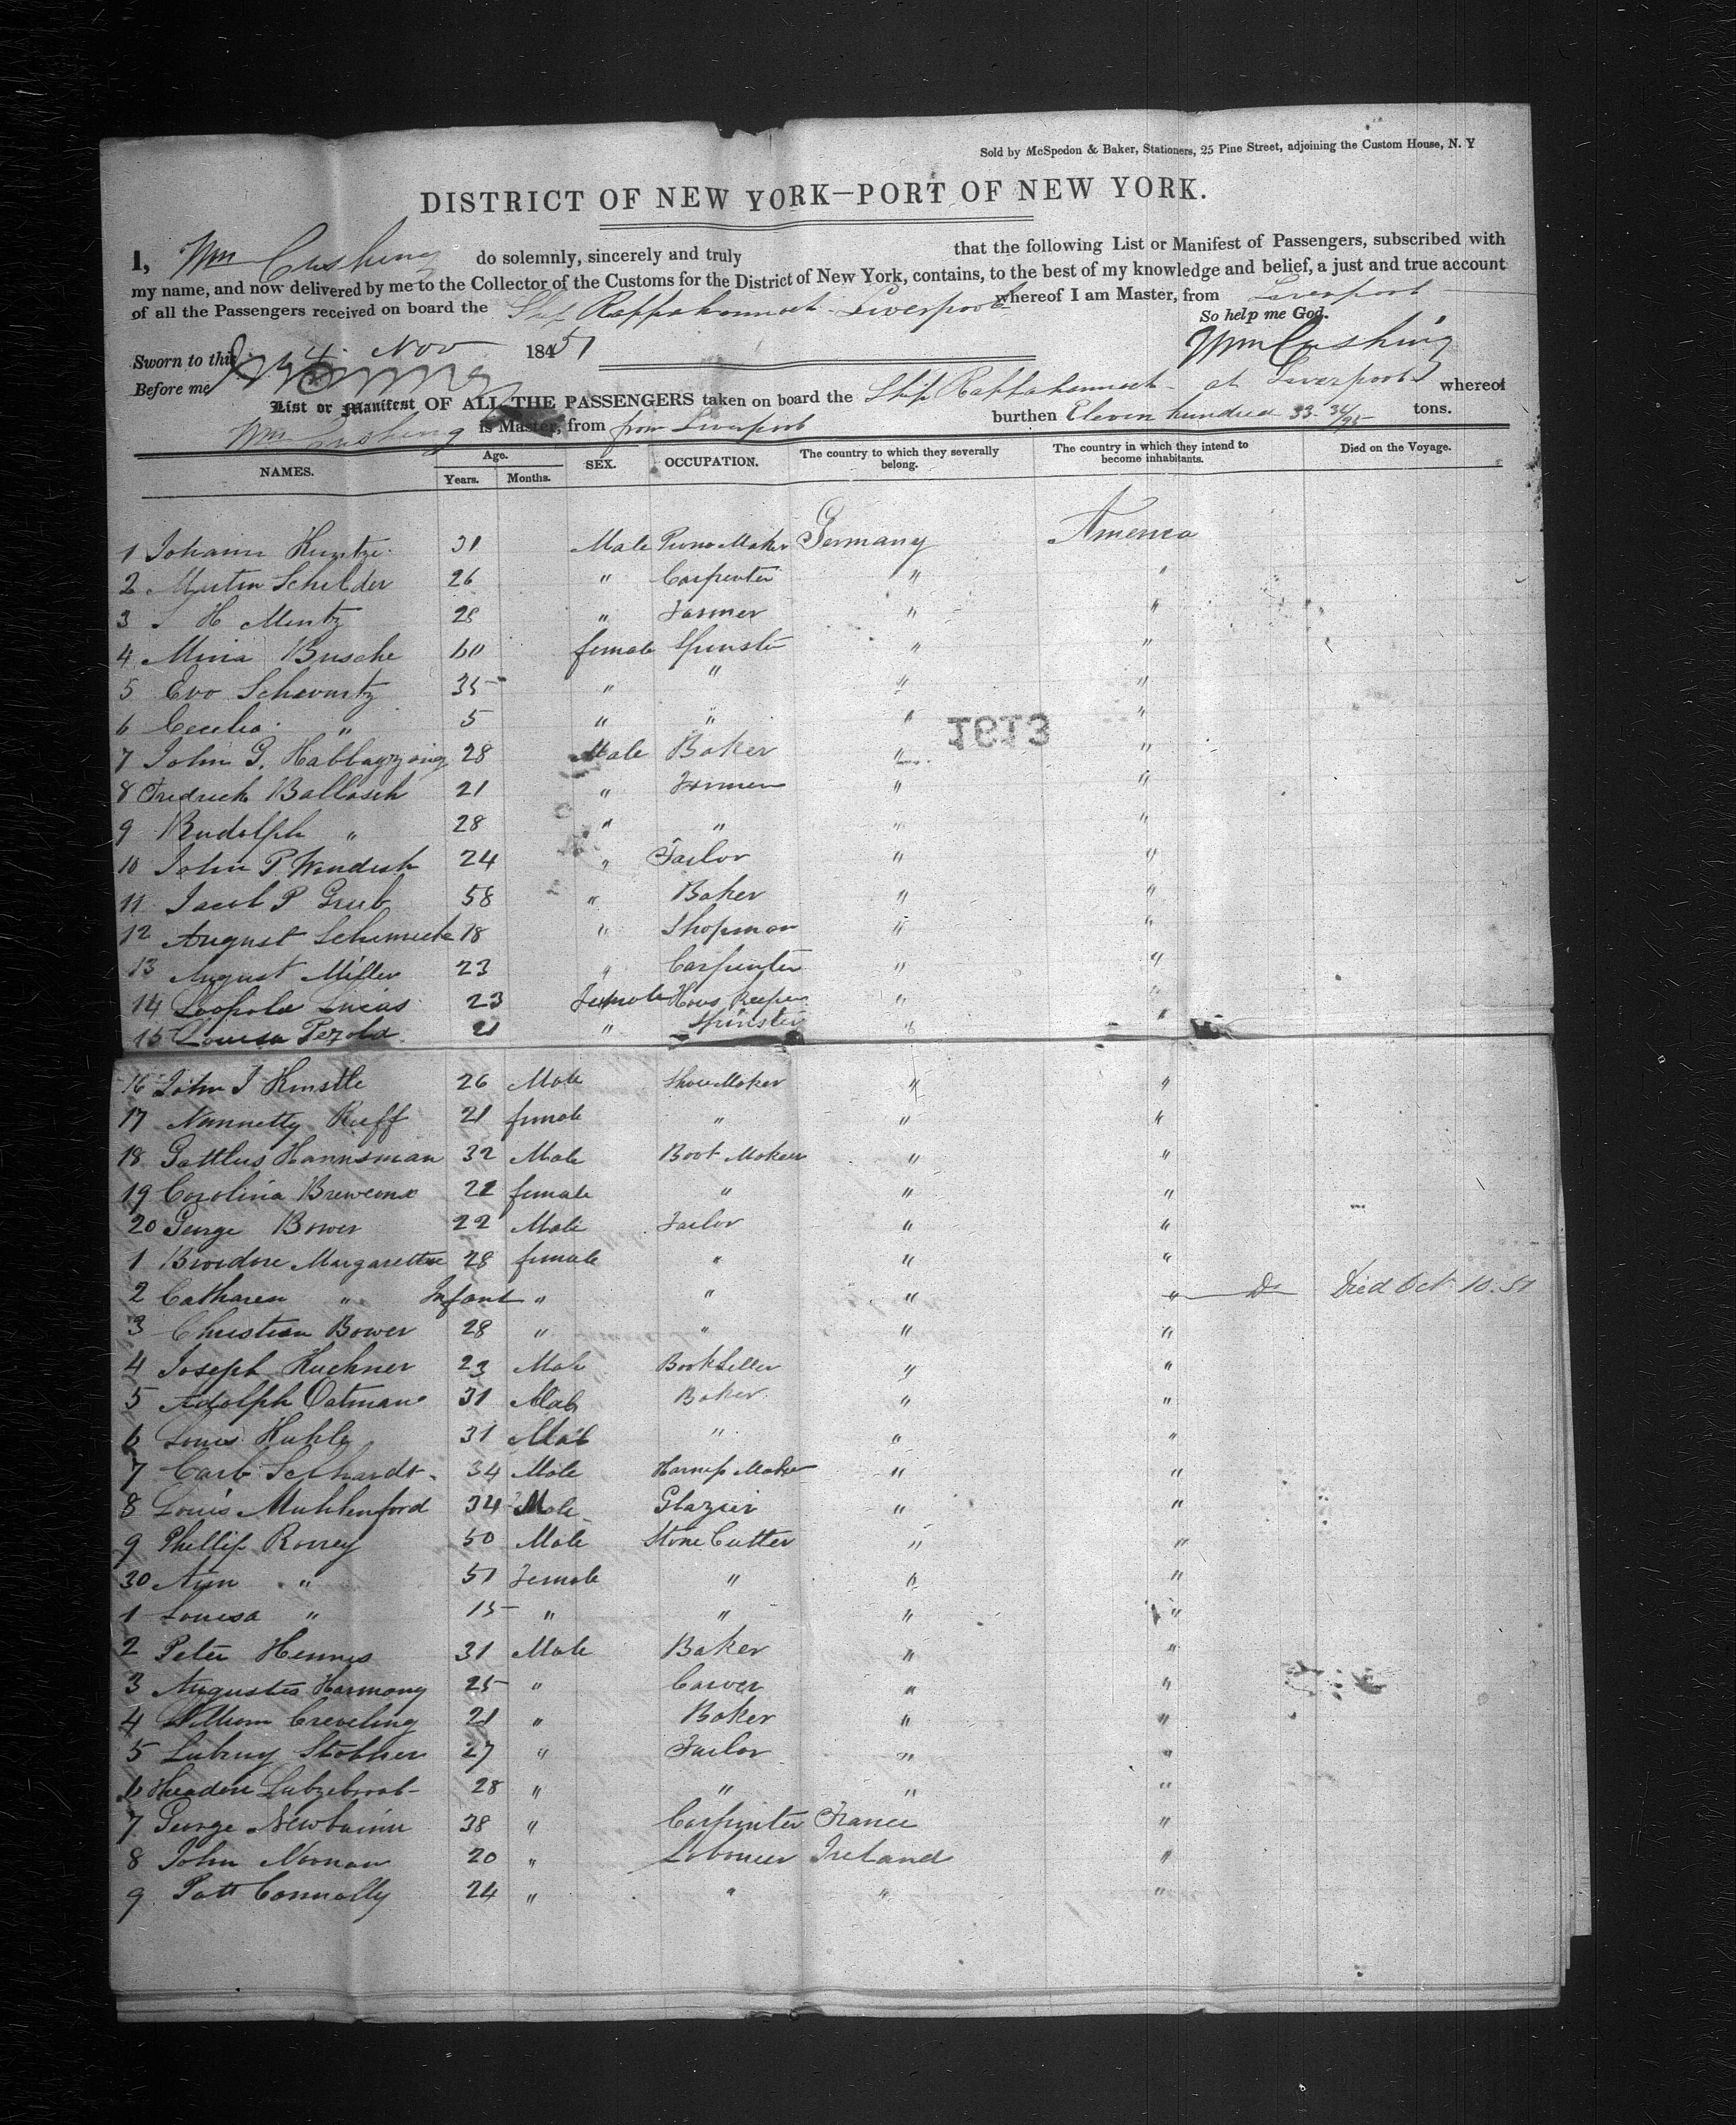 Sold by McSpedon & Baker, Stationers, 25 Pine Street, adjoining the Custom House, N. Y
DISTRICT OF NEW YORK—PORT OF NEW YORK.
I, Wm Cushing do solemnly, sincerely and truly that the following List or Manifest of Passengers, subscribed with
my name, and now delivered by me to the Collector of the Customs for the District of New York, contains, to the best of my knowledge and belief, a just and true account
of all the Passengers received on board the Ship Rappahannock Liverpool whereof I am Master, from Liverpool
So help me God.
Sworn to this 4 Nov 18451 Wm Cushing
Before me
List or Manifest OF ALL THE PASSENGERS taken on board the Ship Rappahannock at Liverpool whereof
Wm Cushing is Master, from from Liverpool burthen Eleven hundred 33 34/95 tons.
NAMES. Age. Years. Months. SEX. OCCUPATION. The country to which they severally belong. The country in which they intend to become inhabitants. Died on the Voyage.
1 Johann Kuntze 31 Male Piano Maker Germany America
2 Martin Schilder 26 " Carpenter " "
3 J H Mentz 28 " Farmer " "
4 Mina Busche 60 female Spinster " "
5 Eva Schwartz 35 " " " "
6 Cecelia " 5 " " " "
7 John G. 28 Male Baker " "
8 Fredrick Ballasch 21 " Farmer " "
9 Rudolph " 28 " " " "
10 John P Windish 24 " Tailor " "
11 Jacob P Grub 58 " Baker " "
12 August Schimick 18 " Shopman " "
13 August Miller 23 " Carpenter " "
14 Leopold Lucas 23 Female Hous Keeper " "
15 Louisa Pezold 21 " Spinster " "
16 John J Kinstle 26 Male Shoe Maker " "
17 Nannetty Ruff 21 female " " "
18 Gottleus Hannsman 32 Male Boot Maker " "
19 Carolina 22 female " " "
20 George Bower 22 Male Tailor " "
1 Margarettea 28 female " " "
2 Catharen " Infant " " " " Do Died Oct 10. 51
3 Christian Bower 28 " " " "
4 Joseph Huchner 23 Male Book Seller " "
5 Adolph Oatman 31 Male Baker " "
6 Louis Huhle 31 Male " " "
7 Carl Selhardt 34 Male Harness Maker " "
8 Louis Muhlenford 34 Male Glazier " "
9 Phillip Rorrey 50 Male Stone Cutter " "
30 Ann " 51 Female " " "
1 Louisa " 15 " " " "
2 Peter Hennes 31 Male Baker " "
3 Augustes Harmony 25 " Carver " "
4 William Creveling 21 " Baker " "
5 Stobher 27 " Tailor " "
6 28 " " " "
7 George Newbainn 38 " Carpenter France "
8 John Noonan 20 " Labourer Ireland "
9 Patt Connolly 24 " " " "
1613